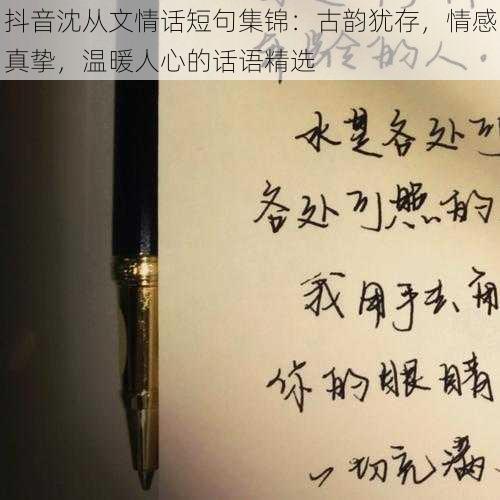 抖音沈从文情话短句集锦：古韵犹存，情感
真挚，温暖人心的话语精选
的人.
水是各处可
各处可照的
我用手去
你的眼睛
一切充满